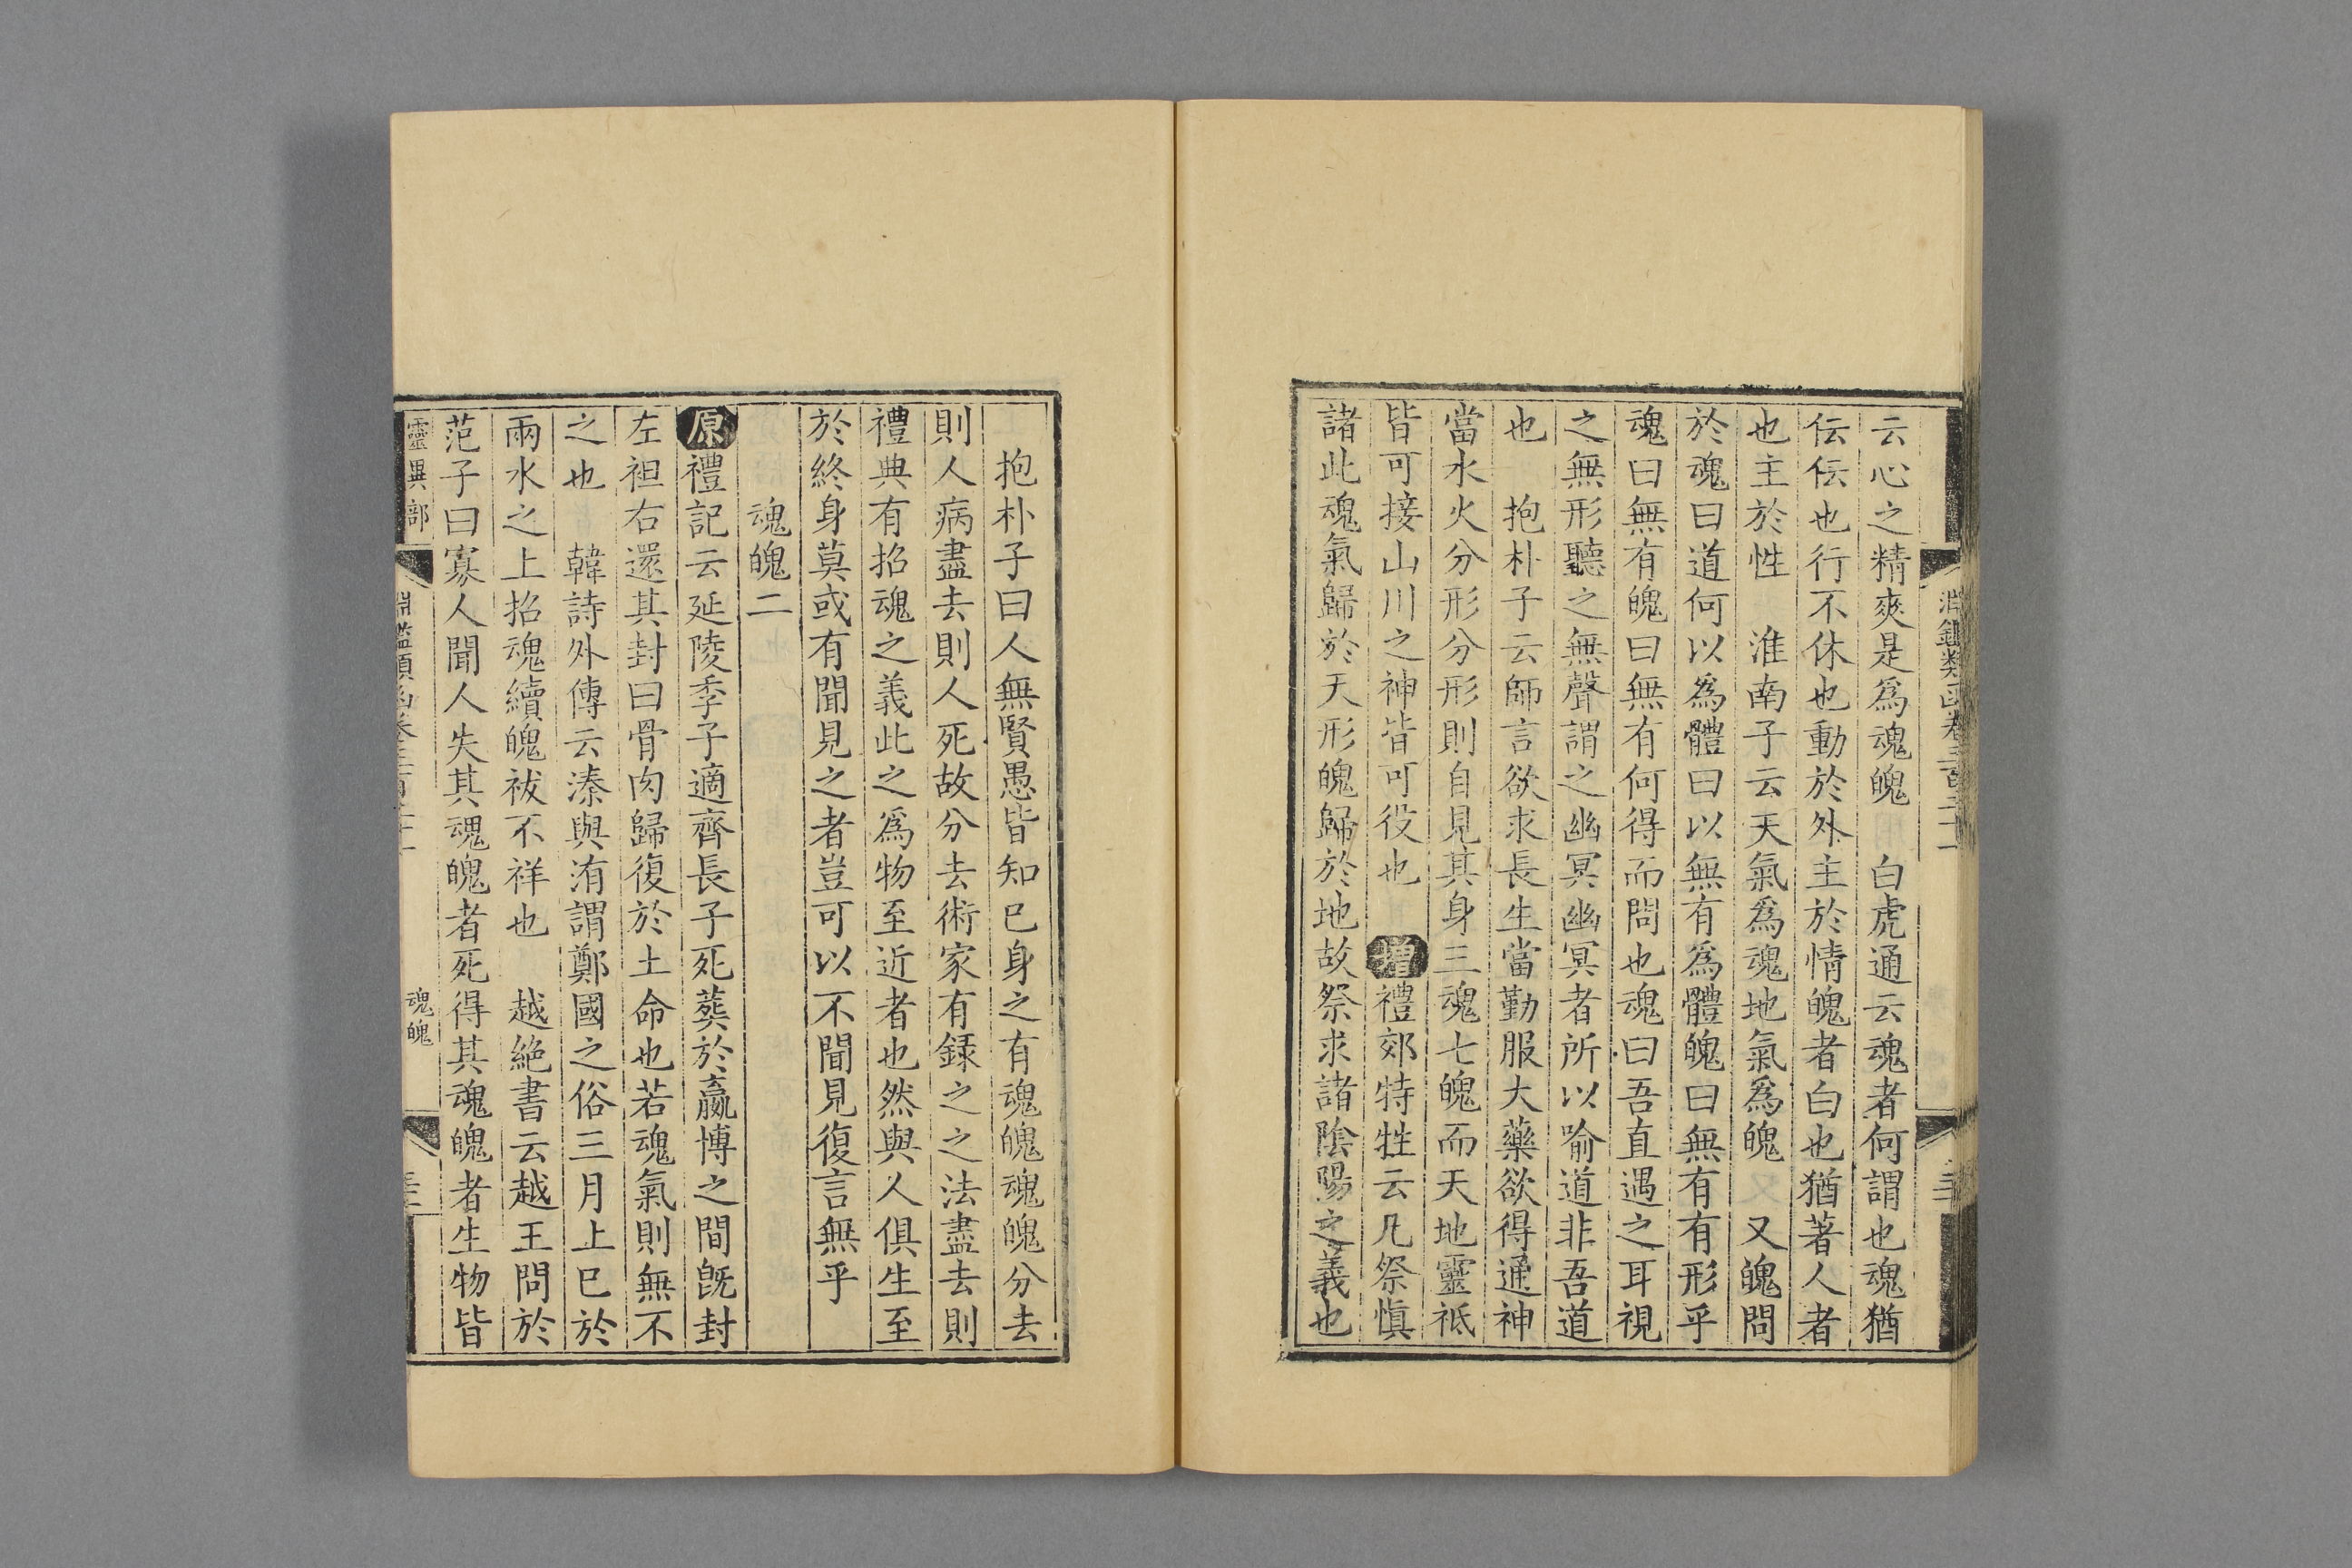 淵鑑類函卷三百二十一
云心之精爽是爲魂魄　白虎通云魂者何謂也魂猶
伝伝也行不休也動於外主於情魄者白也猶著人者
也主於性　淮南子云天氣爲魂地氣爲魄　又魄問
於魂曰道何以爲體曰以無有爲體魄曰無有有形乎
魂曰無有魄曰無有何得而問也魂曰吾直遇之耳視
之無形聽之無聲謂之幽冥幽冥者所以喻道非吾道
也　抱朴子云師言欲求長生當勤服大藥欲得通神
當水火分形分形則自見其身三魂七魄而天地靈祇
皆可接山川之神皆可役也　增禮郊特牲云凡祭慎
諸此魂氣歸於天形魄歸於地故祭求諸陰陽之義也
抱朴子曰人無賢愚皆知已身之有魂魄魂魄分去
則人病盡去則人死故分去術家有録之之法盡去則
禮典有招魂之義此之爲物至近者也然與人俱生至
於終身莫或有聞見之者豈可以不聞見復言無乎
魂魄二
原禮記云延陵季子適齊長子死葬於嬴博之間旣封
左袒右還其封曰骨肉歸復於土命也若魂氣則無不
之也　韓詩外傳云溱與洧謂鄭國之俗三月上巳於
兩水之上招魂續魄祓不祥也　越絶書云越王問於
范子曰寡人聞人失其魂魄者死得其魂魄者生物皆
靈異部　淵鑑類函卷三百二十一　魂魄